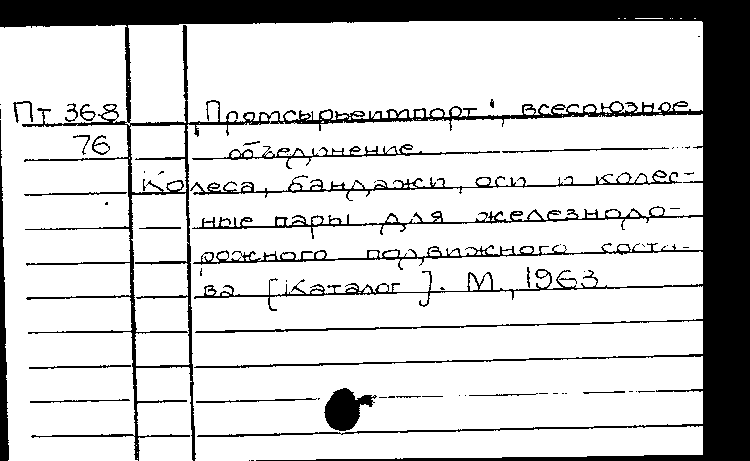 Пт 36-8 "Промсырьеимпорт", всесоюзное
76 объединение.
Колеса, бандажи, оси и колес-
ные пары для железнодо-
рожного подвижного соста-
ва [Каталог]. М., 1963.